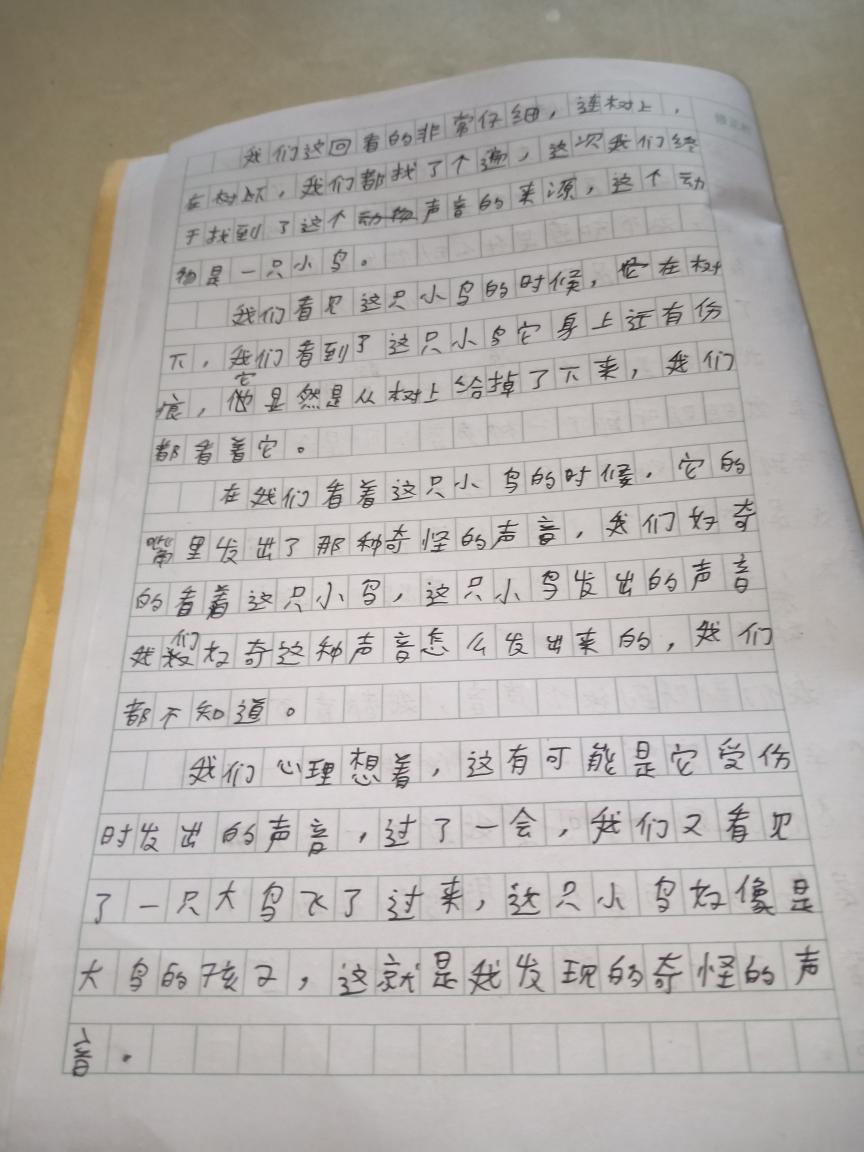 我们这回看的非常仔细，连树上，
在树下，我们都找了个遍，这次我们终
于找到了这个动物声音的来源，这个动
物是一只小鸟。
我们看见这只小鸟的时候，它在树
下，我们看到了这只小鸟它身上还有伤
痕，它显然是从树上给掉了下来，我们
都看着它。
在我们看着这只小鸟的时候，它的
嘴里发出了那种奇怪的声音，我们好奇
的看着这只小鸟，这只小鸟发出的声音
我们好奇这种声音怎么发出来的，我们
都不知道。
我们心理想着，这有可能是它受伤
时发出的声音，过了一会，我们又看见
了一只大鸟飞了过来，这只小鸟好像是
大鸟的孩子，这就是我发现的奇怪的声
音．